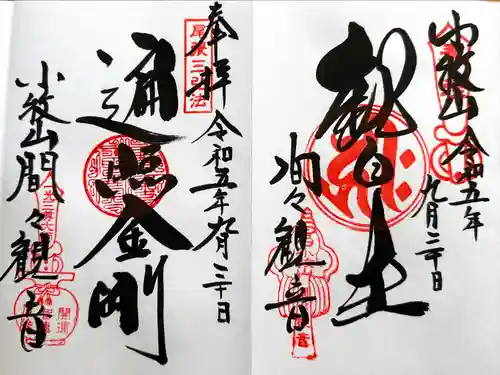 小牧山 令和五年
九月三十日
観自在
間々観音
奉拝 令和五年九月三十日
尾張三弘法
遍照金剛
小牧山間々観音